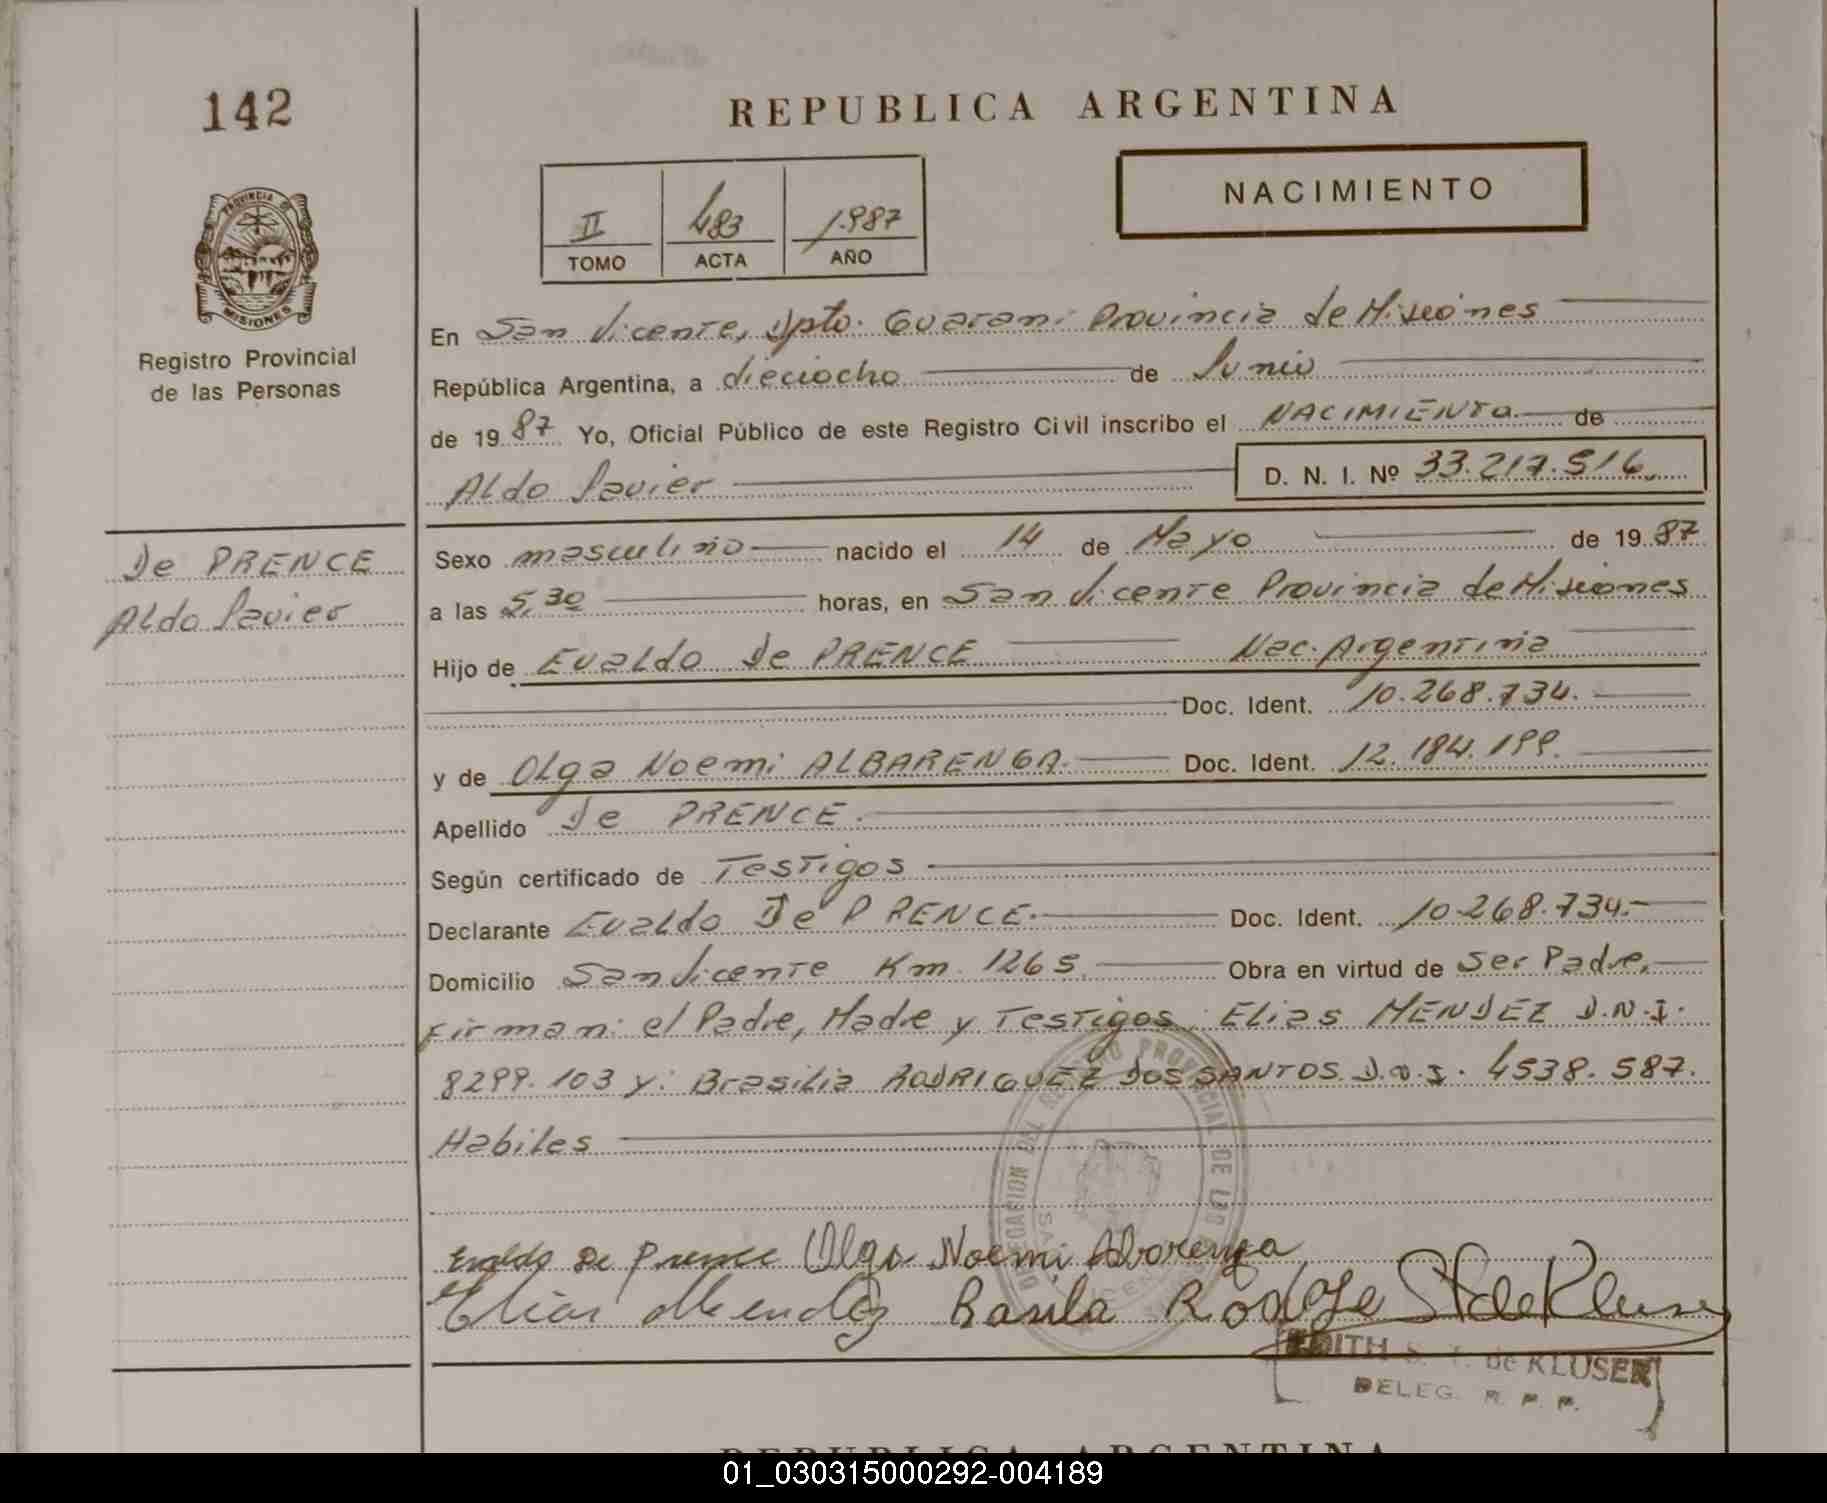 142
REPUBLICA ARGENTINA
NACIMIENTO
II 483 1.987
TOMO ACTA AÑO
PROVINCIA D
MISIONES
Registro Provincial
de las Personas
En San Vicente, Dpto. Guarani Provincia de Misiones
República Argentina, a dieciocho de Junio
de 19 87 Yo, Oficial Público de este Registro Civil inscribo el NACIMIENTO de
Aldo Javier D. N. I. Nº 33.217.516
De PRENCE
Aldo Javier
Sexo masculino nacido el 14 de Mayo de 19 87
a las 5,30 horas, en San Vicente Provincia de Misiones
Hijo de Evaldo De PRENCE Nac. Argentina
Doc. Ident. 10.268.734.
y de Olga Noemi ALBARENGA. Doc. Ident. 12.184.199.
Apellido De PRENCE.
Según certificado de Testigos
Declarante Evaldo De PRENCE. Doc. Ident. 10.268.734.
Domicilio San Vicente Km. 1265. Obra en virtud de Ser Padre,
Firman: el Padre, Madre y Testigos, Elias MENDEZ D.N.I.
8299.103 y: Brasilia RODRIGUEZ DOS SANTOS. D.N.I. 4538.587.
Habiles
DELEGACION DEL REGISTRO PROVINCIAL DE LAS
Evaldo De Prence Olga Noemi Alvarenga
Elias Mendez
EDITH S. T. de KLUSER
DELEG. R. P. P.
REPUBLICA ARGENTINA
01_030315000292-004189